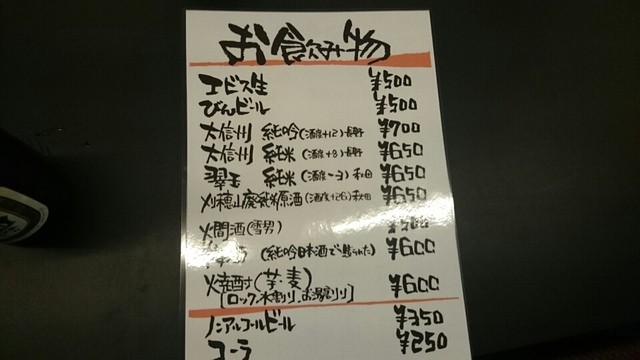 お飲み物
エビス生 ¥500
びんビール ¥500
大信州 純吟(酒度+12)長野 ¥700
大信州 純米(酒度+8)長野 ¥650
翠玉 純米(酒度-3)秋田 ¥650
刈穂山廃純米原酒(酒度+26)秋田 ¥650
燗酒(雪男) ¥500
(純吟日本酒で造られた) ¥600
焼酎(芋・麦) ¥600
[ロック、水割り、お湯割り]
ノンアルコールビール ¥350
コーラ ¥250